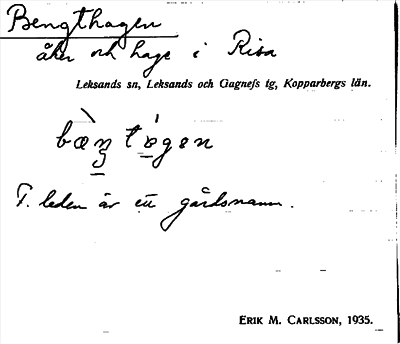 Bengthagen
åker och hage i Risa
Leksands sn, Leksands och Gagnefs tg, Kopparbergs län.
bæŋtøgen
F. leden är ett gårdsnamn.
ERIK M. CARLSSON, 1935.